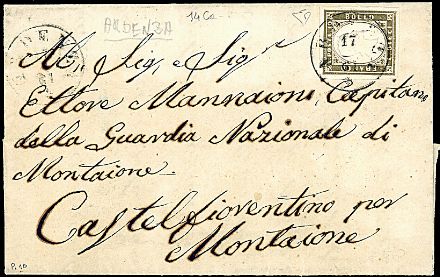 ARDENZA
14 Ca
BOLLO
17
Al Sig. e Sig.
Ettore Mannaioni, Capitano
della Guardia Nazionale di
Montaione.
Castelfiorentino per
Montaione
P. 10